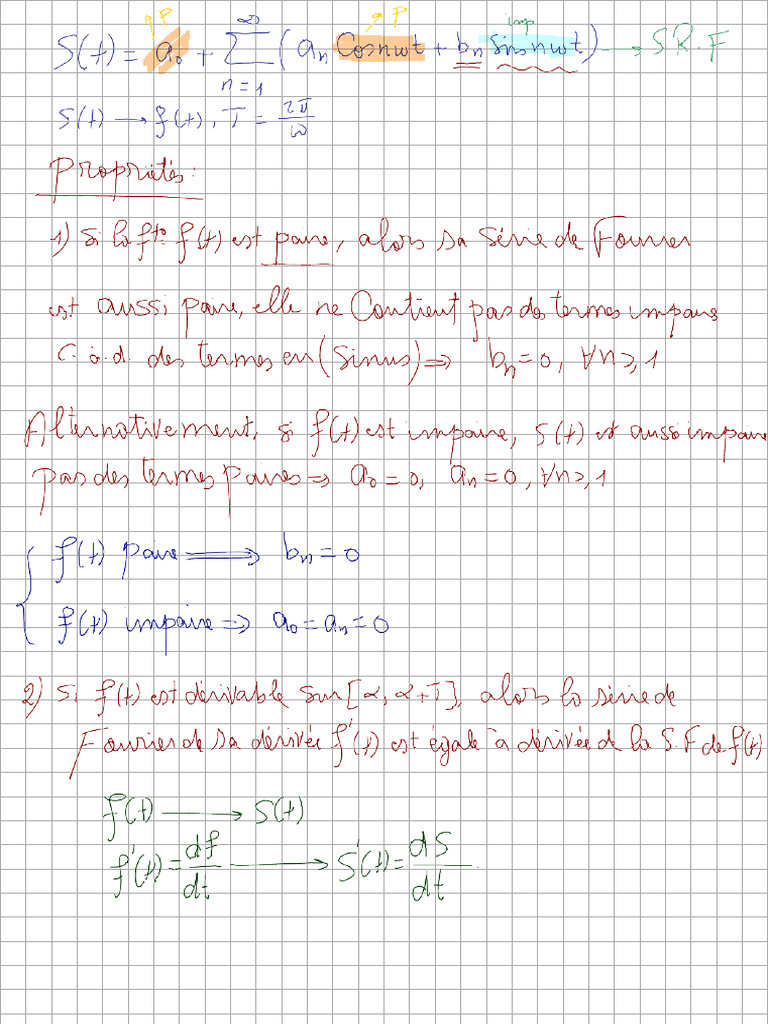 P P imp
S(t) = a₀ + ∑_{n=1}^{∞} (aₙ Cos nωt + bₙ Sin nωt) → S.R.F
S(t) → f(t), T = 2π/ω
Propriétés:
1) Si la f^to f(t) est paire, alors sa série de Fourier
est aussi paire, elle ne Contient pas des termes impaires
C. à. d. des termes en (Sinus) ⇒ bₙ = 0, ∀n ≥ 1
Alternativement, si f(t) est impaire, S(t) est aussi impaire
pas des termes paires ⇒ a₀ = 0, aₙ = 0, ∀n ≥ 1
{ f(t) paire ⇒ bₙ = 0
f(t) impaire ⇒ a₀ = aₙ = 0
2) Si f(t) est dérivable sur [α, α+T], alors la série de
Fourier de sa dérivée f'(t) est égale à dérivée de la S.F de f(t)
f(t) → S(t)
f'(t) = df/dt → S'(t) = dS/dt